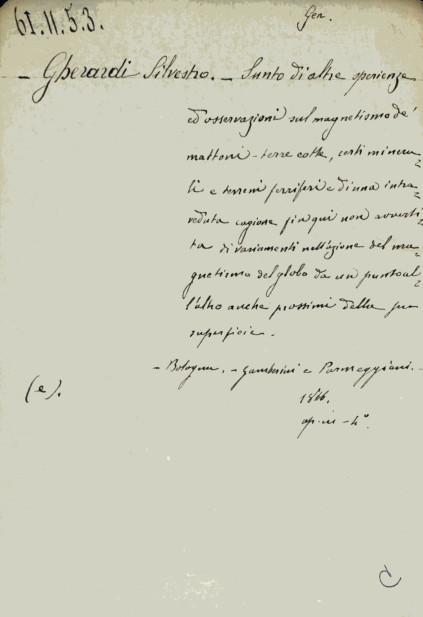 61.11.53.
Gen.
- Gherardi Silvestro. - Sunto di altre sperienze
ed osservazioni sul magnetismo de'
mattoni - terre cotte, certi minera=
li e terreni ferriferi e di una intra=
veduta cagione fin qui non avverti=
ta di variamenti nell'azione del ma=
gnetismo del globo da un punto al=
l'altro anche prossimi della sua
superficie -
- Bologna. - Gamberini e Parmeggiani. -
(e).
1866.
op. in - 4°.